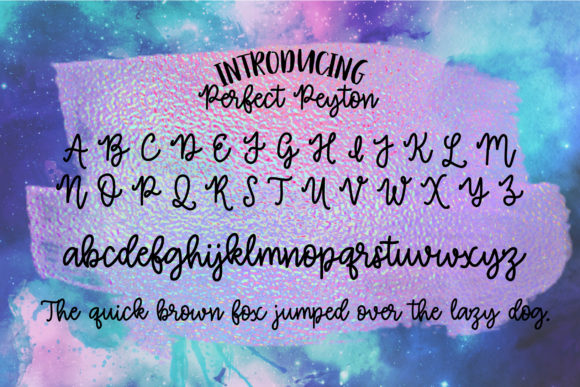 INTRODUCING
Perfect Peyton
A B C D E F G H I J K L M
N O P Q R S T U V W X Y Z
abcdefghijklmnopqrstuvwxyz
The quick brown fox jumped over the lazy dog.